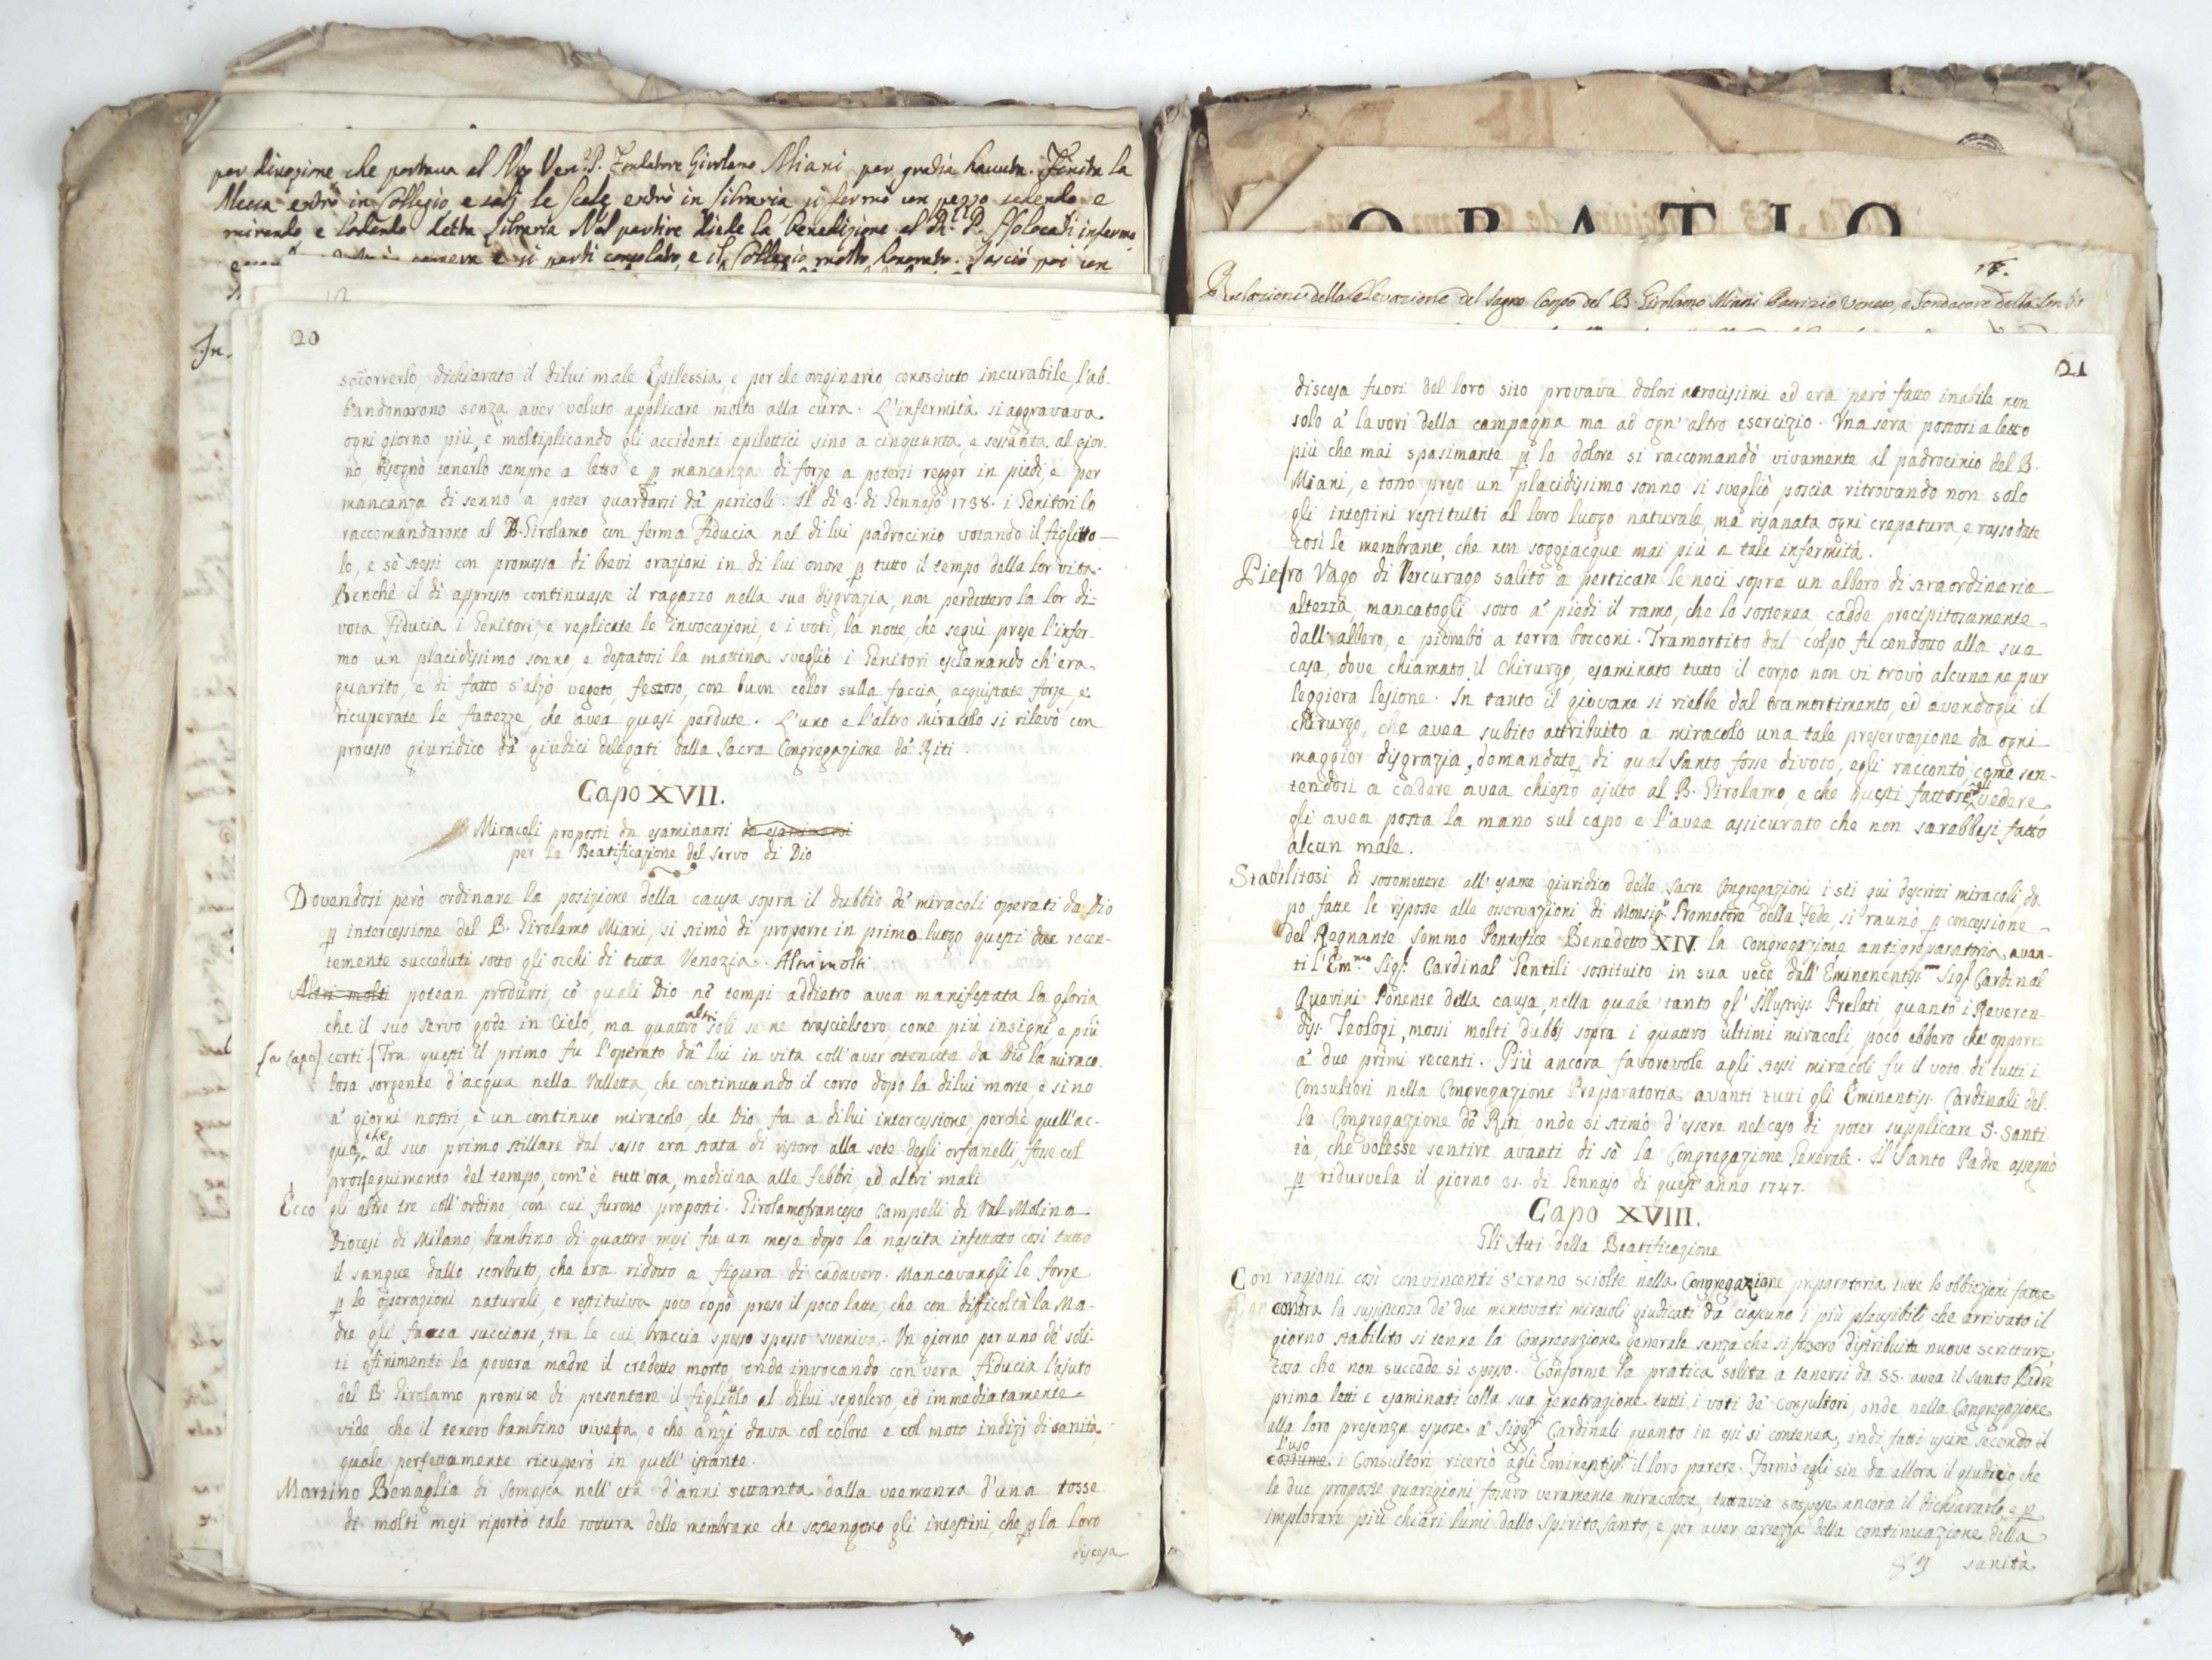 per divozione che portava al Nro Ven. P. Fondatore Girolamo Miani per grazia havuta. Finita la
Messa entrò in Collegio e salj le Scale entrò in libraria si fermò un pezzo sedendo e
mirando e lodando detta libraria Nel partire diede la benedizione al P. infermo
camera e si partì consolato, e il Collegio molto honorato. Lasciò poi un
In.
20
soccorrerlo, dichiarato il dilui male Epilessia, e perche originario conosciuto incurabile, l'ab-
bandonarono senza aver voluto applicare molto alla cura. L'infermità si aggravava
ogni giorno più, e moltiplicando gli accidenti epilettici sino a cinquanta, e sessanta al gior-
no, bisognò tenerlo sempre a letto e p mancanza di forze a potersi regger in piedi, e per
mancanza di senno a poter guardarsi dà pericoli. Il dì 3. di Gennajo 1738. i Genitori lo
raccomandarono al B. Girolamo con ferma fiducia nel di lui padrocinio votando il figliuo-
lo, e sè stessi con promessa di brevi orazioni in di lui onore p tutto il tempo della lor vita.
Benchè il dì appresso continuasse il ragazzo nella sua disgrazia, non perdettero la lor di-
vota fiducia i Genitori, e replicate le invocazioni, e i voti, la notte, che seguì prese l'infer-
mo un placidissimo sonno, e destatosi la mattina svegliò i Genitori esclamando ch'era
guarito, e di fatto s'alzò vegeto, festoso, con buon color sulla faccia, acquistate forze, e
ricuperate le fattezze, che avea quasi perdute. L'uno e l'altro miracolo si rilevò con
processo giuridico dà giudici delegati dalla Sacra Congregazione dè Riti.
Capo XVII.
Miracoli proposti da esaminarsi da esaminarsi
per la Beatificazione del Servo di Dio
Dovendosi però ordinare la posizione della causa sopra il dubbio dè miracoli operati da Dio
p intercessione del B. Girolamo Miani, si stimò di proporre in primo luogo questi due recen-
temente succeduti sotto gli occhi di tutta Venezia. Altri molti
Altri molti potean prodursi, cò quali Dio nè tempi addietro avea manifestata la gloria
che il suo servo gode in Cielo, ma quattro altri soli se ne trascielsero, come più insigni, e più
[a capo] certi [Tra questi il primo fu l'operato dà lui in vita coll'aver ottenuta da Dio la miraco-
losa sorgente d'acqua nella Valletta, che continuando il corso dopo la dilui morte, e sino
à giorni nostri, è un continuo miracolo, che Dio fa a dilui intercessione, perchè quell'ac-
qua, che al suo primo stillare dal sasso era stata di ristoro alla sete degli orfanelli, fosse col
proseguimento del tempo, com'è tutt'ora, medicina alle febbri, ed altri mali
Ecco gli altre tre coll'ordine, con cui furono proposti. Girolamofrancesco Campelli di Val Molina
Diocesi di Milano, bambino di quattro mesi fu un mese dopo la nascita infettato così tutto
il sangue dallo scorbuto, che era ridotto a figura di cadavero. Mancavangli le forze
p le operazioni naturali, e restituiva poco dopo preso il poco latte, che con difficoltà la Ma-
dre gli facea succiare, tra le cui braccia spesso spesso sveniva. Un giorno per uno dè soli-
ti sfinimenti la povera madre il credette morto, onde invocando con vera fiducia l'ajuto
del B. Girolamo promise di presentare il figliolo al dilui sepolcro, ed immediatamente
vide che il tenero bambino viveva, e che anzi dava col colore e col moto indizj di sanità,
quale perfettamente ricuperò in quell'istante.
Martino Benaglia di Somasca nell'età d'anni settanta dalla veemenza d'una tosse
di molti mesi riportò tale rottura delle membrane che sostengono gli intestini, che p la loro
discesa
ORATIO
Relazione della Elevazione del Sagro Corpo del B. Girolamo Miani Patrizio Veneto, e Fondatore della
21
discesa fuori del loro sito provava dolori atrocissimi ed era però fatto inabile non
solo à lavori della campagna ma ad ogn'altro esercizio. Una sera postosi a letto
più che mai spasimante p lo dolore si raccomandò vivamente al padrocinio del B.
Miani, e tosto preso un placidissimo sonno si svegliò poscia ritrovando non solo
gli intestini restituiti al loro luogo naturale, ma risanata ogni crepatura, e rassodate
così le membrane, che non soggiacque mai più a tale infermità.
Pietro Vago di Vercurago salito a perticare le noci sopra un albero di straordinaria
altezza, mancatogli sotto à piedi il ramo, che lo sostenea cadde precipitosamente
dall'albero, e piombò a terra bocconi. Tramortito dal colpo fu condotto alla sua
casa, dove chiamato il Chirurgo, esaminato tutto il corpo non vi trovò alcuna ne pur
leggiera lesione. In tanto il giovane si riebbe dal tramortimento, ed avendogli il
Chirurgo, che avea subito attribuito a miracolo una tale preservazione da ogni
maggior disgrazia, domandato di qual Santo fosse divoto, egli raccontò, come sen-
tendosi a cadere avea chiesto ajuto al B. Girolamo, e che questi fattosegli vedere
gli avea posta la mano sul capo e l'avea assicurato che non sarebbesi fatto
alcun male.
Stabilitosi di sottomettere all'esame giuridico delle Sacre Congregazioni i sei quì descritti miracoli do-
po fatte le risposte alle osservazioni di Monsigr. Promotore della Fede, si raunò p concessione
del Regnante Sommo Pontefice Benedetto XIV. la Congregazione antipreparatoria avan-
ti l'Emmo. Sigr. Cardinal Gentili sostituito in sua vece dall'Eminentiss. Sigr. Cardinal
Quevini Ponente della causa, nella quale tanto gl'Illustriss. Prelati, quanto i Reveren-
diss. Teologi, mossi molti dubbj sopra i quattro ultimi miracoli, poco ebbero che opporre
à due primi recenti. Più ancora favorevole agli stessi miracoli fu il voto di tutti i
Consultori nella Congregazione Preparatoria avanti tutti gli Eminentiss. Cardinali del-
la Congregazione dè Riti, onde si stimò d'essere nel caso di poter supplicare S. Santi-
tà, che volesse sentire avanti di sè la Congregazione Generale. Il Santo Padre assegnò
p ridurvela il giorno 31. di Gennajo di quest'anno 1747.
Capo XVIII.
Gli Atti della Beatificazione
Con ragioni così convincenti s'erano sciolte nella Congregazione preparatoria tutte le obbiezioni fatte
contra la sussistenza de' due mentovati miracoli giudicati da ciascuno i più plausibili che arrivato il
giorno stabilito si tenne la Congregazione generale senza che si fossero distribuite nuove scritture,
cosa che non succede sì spesso. Conforme la pratica solita a tenersi da SS. avea il Santo Padre
prima letti e esaminati colla sua penetrazione tutti i voti dè Consultori, onde nella Congregazione
alla loro presenza espose à Sigri Cardinali quanto in essi si contenea, indi fatti uscire secondo il
l'uso
costume i Consultori, ricercò agli Eminentiss. il loro parere. Formò egli sin da allora il giudizio che
le due proposte guarigioni fossero veramente miracolose, tuttavia sospese ancora il dichiararlo, e p
implorare più chiari lumi dallo Spirito Santo, e per aver certezza della continuazione della
sanità